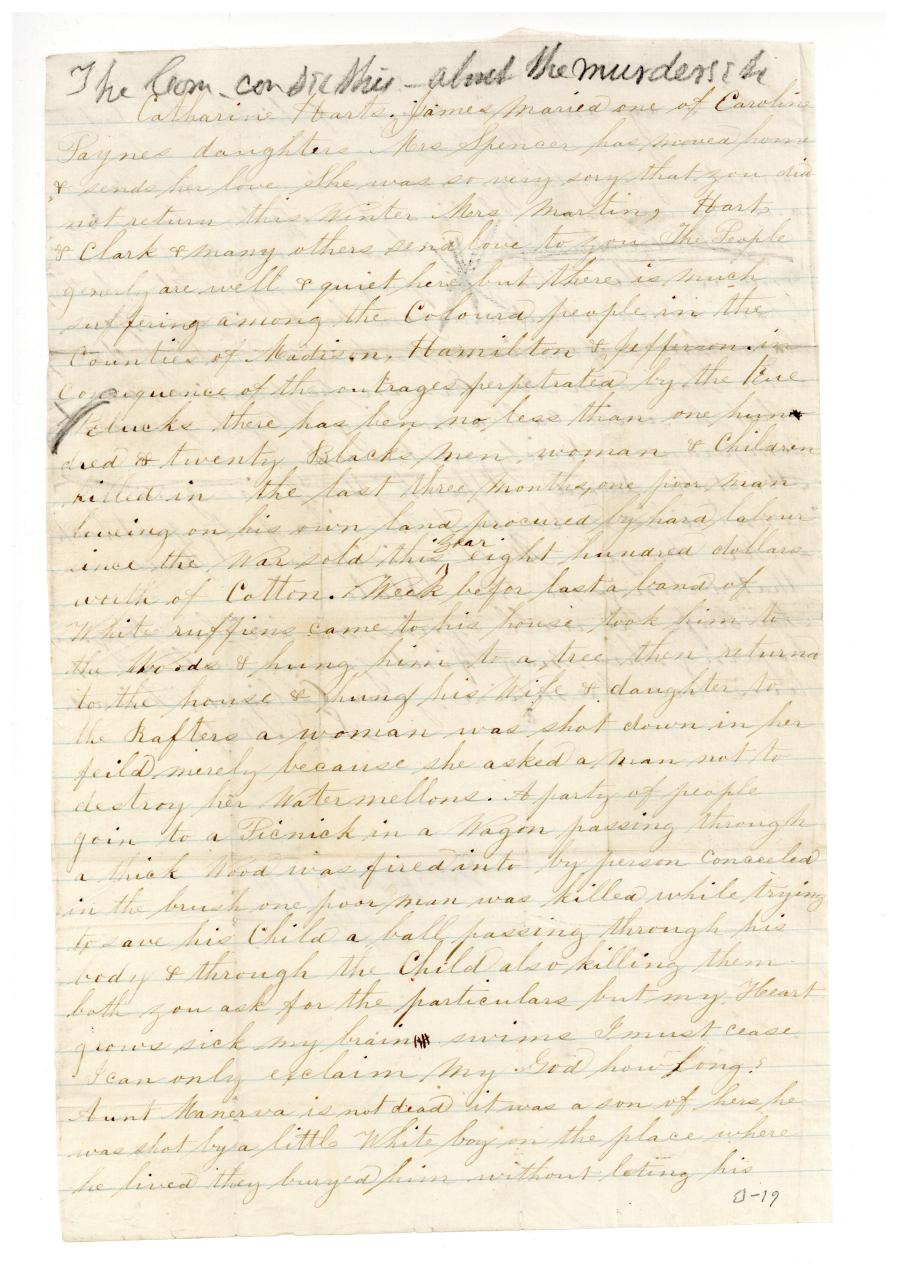 The Com - con Dic this - about the murders &c
Catharine Harts. James maried one of Caroline
Paynes daughters Mrs Spencer has moved home
& sends her love She was so very sory that you did
not return this Winter Mrs Martin, Hart,
& Clark & many others send love to you The People
genrly are well & quiet here but there is much
suffering among the Colourd people in the
Counties of Madison, Hamilton & Jefferson in
Consequence of the outrages perpetrated by the Kue
Klucks there has ben no less than one hun
dred & twenty Blacks men woman & Children
killed in the last three months, one poor man
liveing on his own land procured by hard labour
since the War sold this year eight hundred dollars
worth of Cotton. Week befor last a band of
White ruffiens came to his house took him to
the Woods & hung him to a tree then returnd
to the house & hung his Wife & daughter to
the Rafters a woman was shot down in her
feild merely because she asked a man not to
destroy her Watermellons. A party of people
goin to a Picnick in a Wagon passing through
a thick Wood was fired into by person conceeled
in the brush one poor man was killed while trying
to save his Child a ball passing through his
body & through the Child also killing them
both you ask for the particulars but my Heart
grows sick my brain swims I must cease
I can only exclaim My God how long?
Aunt Manerva is not dead it was a son of hers he
was shot by a little White boy on the place where
he lived they buryed him without leting his
B-19